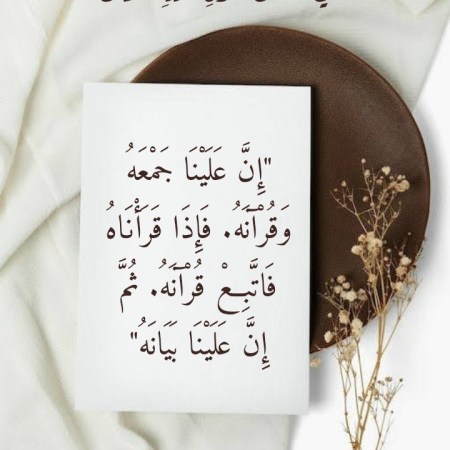 "إِنَّ عَلَيْنَا جَمْعَهُ
وَقُرْآنَهُ. فَإِذَا قَرَأْنَاهُ
فَاتَّبِعْ قُرْآنَهُ. ثُمَّ
إِنَّ عَلَيْنَا بَيَانَهُ"